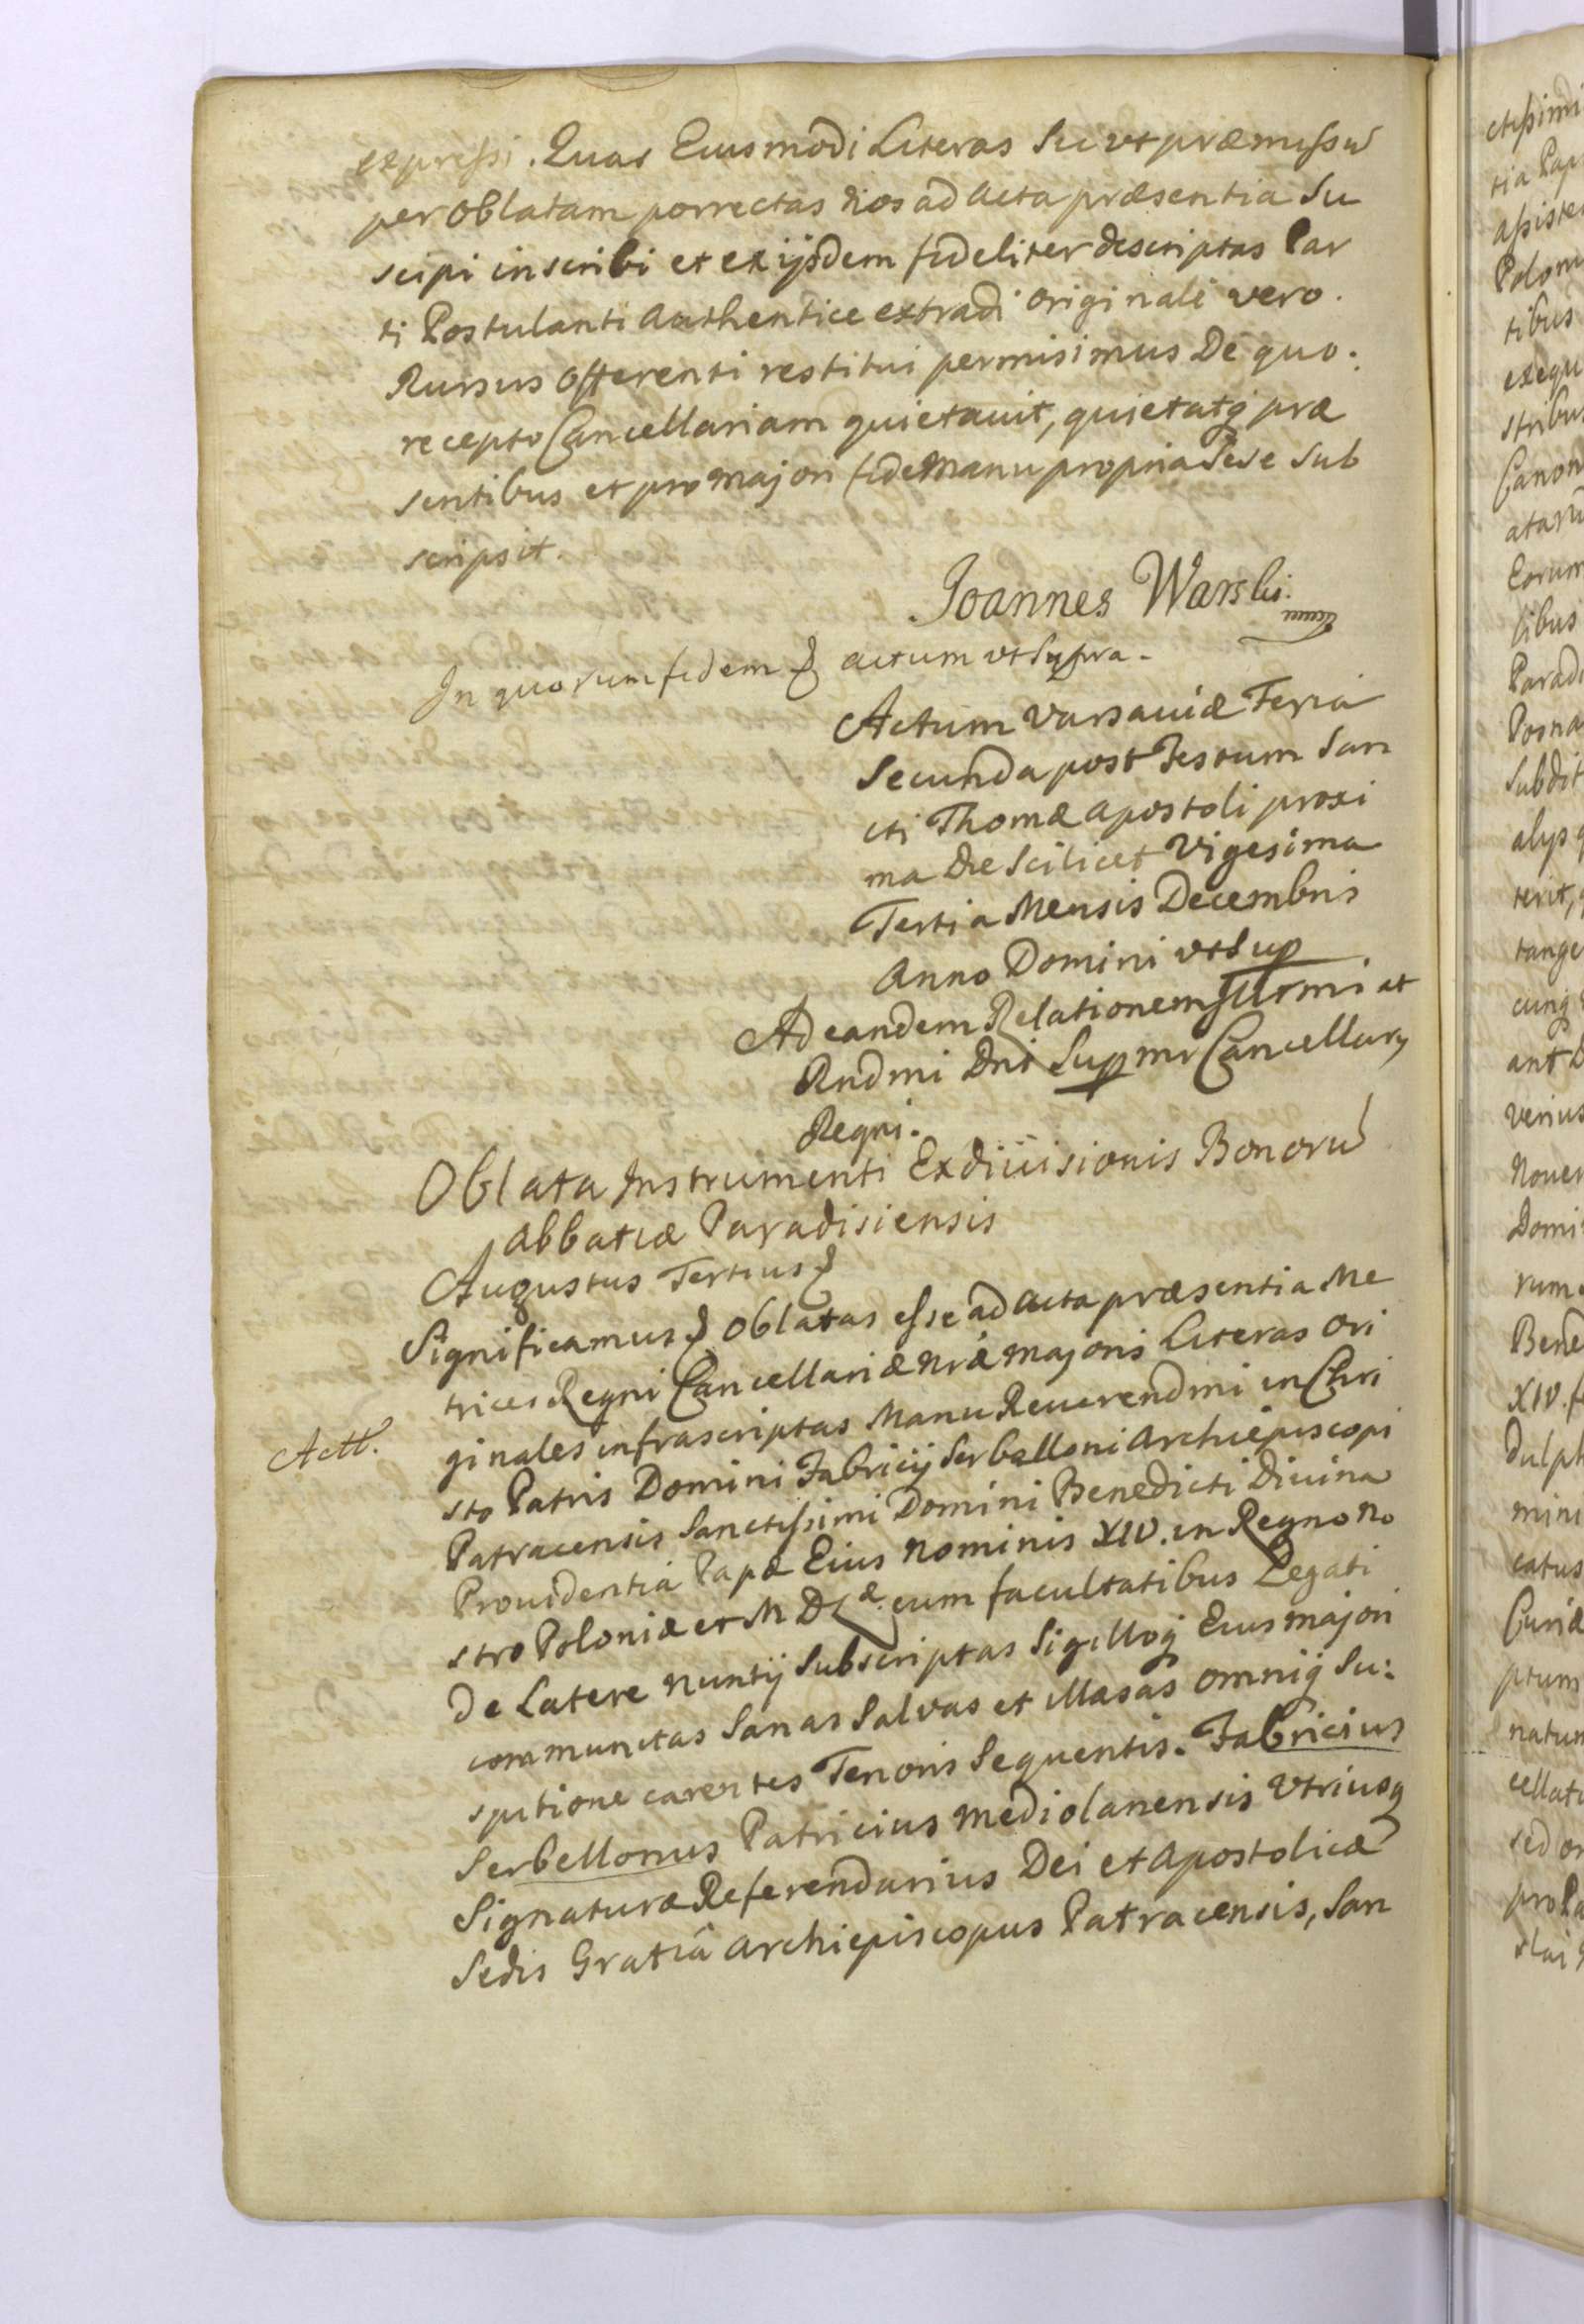 expressi. Quas Eiusmodi Literas Sic vt præmissũ
per Oblatam porrectas Nos ad Acta præsentia Su
scipi inscribi et ex ijsdem fideliter descriptas Par
ti Postulanti Authentice extradi Originali vero.
Rursus Offerenti restitui permisimus De quo.
recepto Cancellariam quietauit, quietatq præ
sentibus et pro Majori fide Manu propria Sese Sub
scripsit.
Joannes Warski.
In quorum fidem & actum vt Supra.
Actum Varsauiæ Feria
Secunda post Festum San
cti Thomæ Apostoli proxi
ma Die Scilicet Vigesima
Tertia Mensis Decembris
Anno Domini vt Sup
Ad eandem Relationem Illrmi at
Rndmi Dni Supmi Cancellarij
Regni.
Oblata Instrumenti Exdiuisionis Bonorũ
Abbatiæ Paradisiensis
Augustus Tertius &
Significamus & Oblatas esse ad Acta præsentia Me
trices Regni Cancellariæ Nræ Majoris Literas Ori
Actt.
ginales infrascriptas Manu Reuerendmi in Chri
sto Patris Domini Fabricij Serbelloni Archiepiscopi
Patracensis Sanctissimi Domini Benedicti Diuina
Prouidentia Papæ Eius Nominis XIV. in Regno No
stro Poloniæ et M D Læ cum facultatibus Legati
De Latere Nuntij Subscriptas Sigilloq Eius majori
communitas Sanas Saluas et illæsas omniq Su:
spitione carentes Tenoris Sequentis. Fabricius
Serbellonus Patricius Mediolanensis Vtriusq
Signaturæ Referendarius Dei et Apostolicæ
Sedis Gratiâ Archiepiscopus Patracensis, San